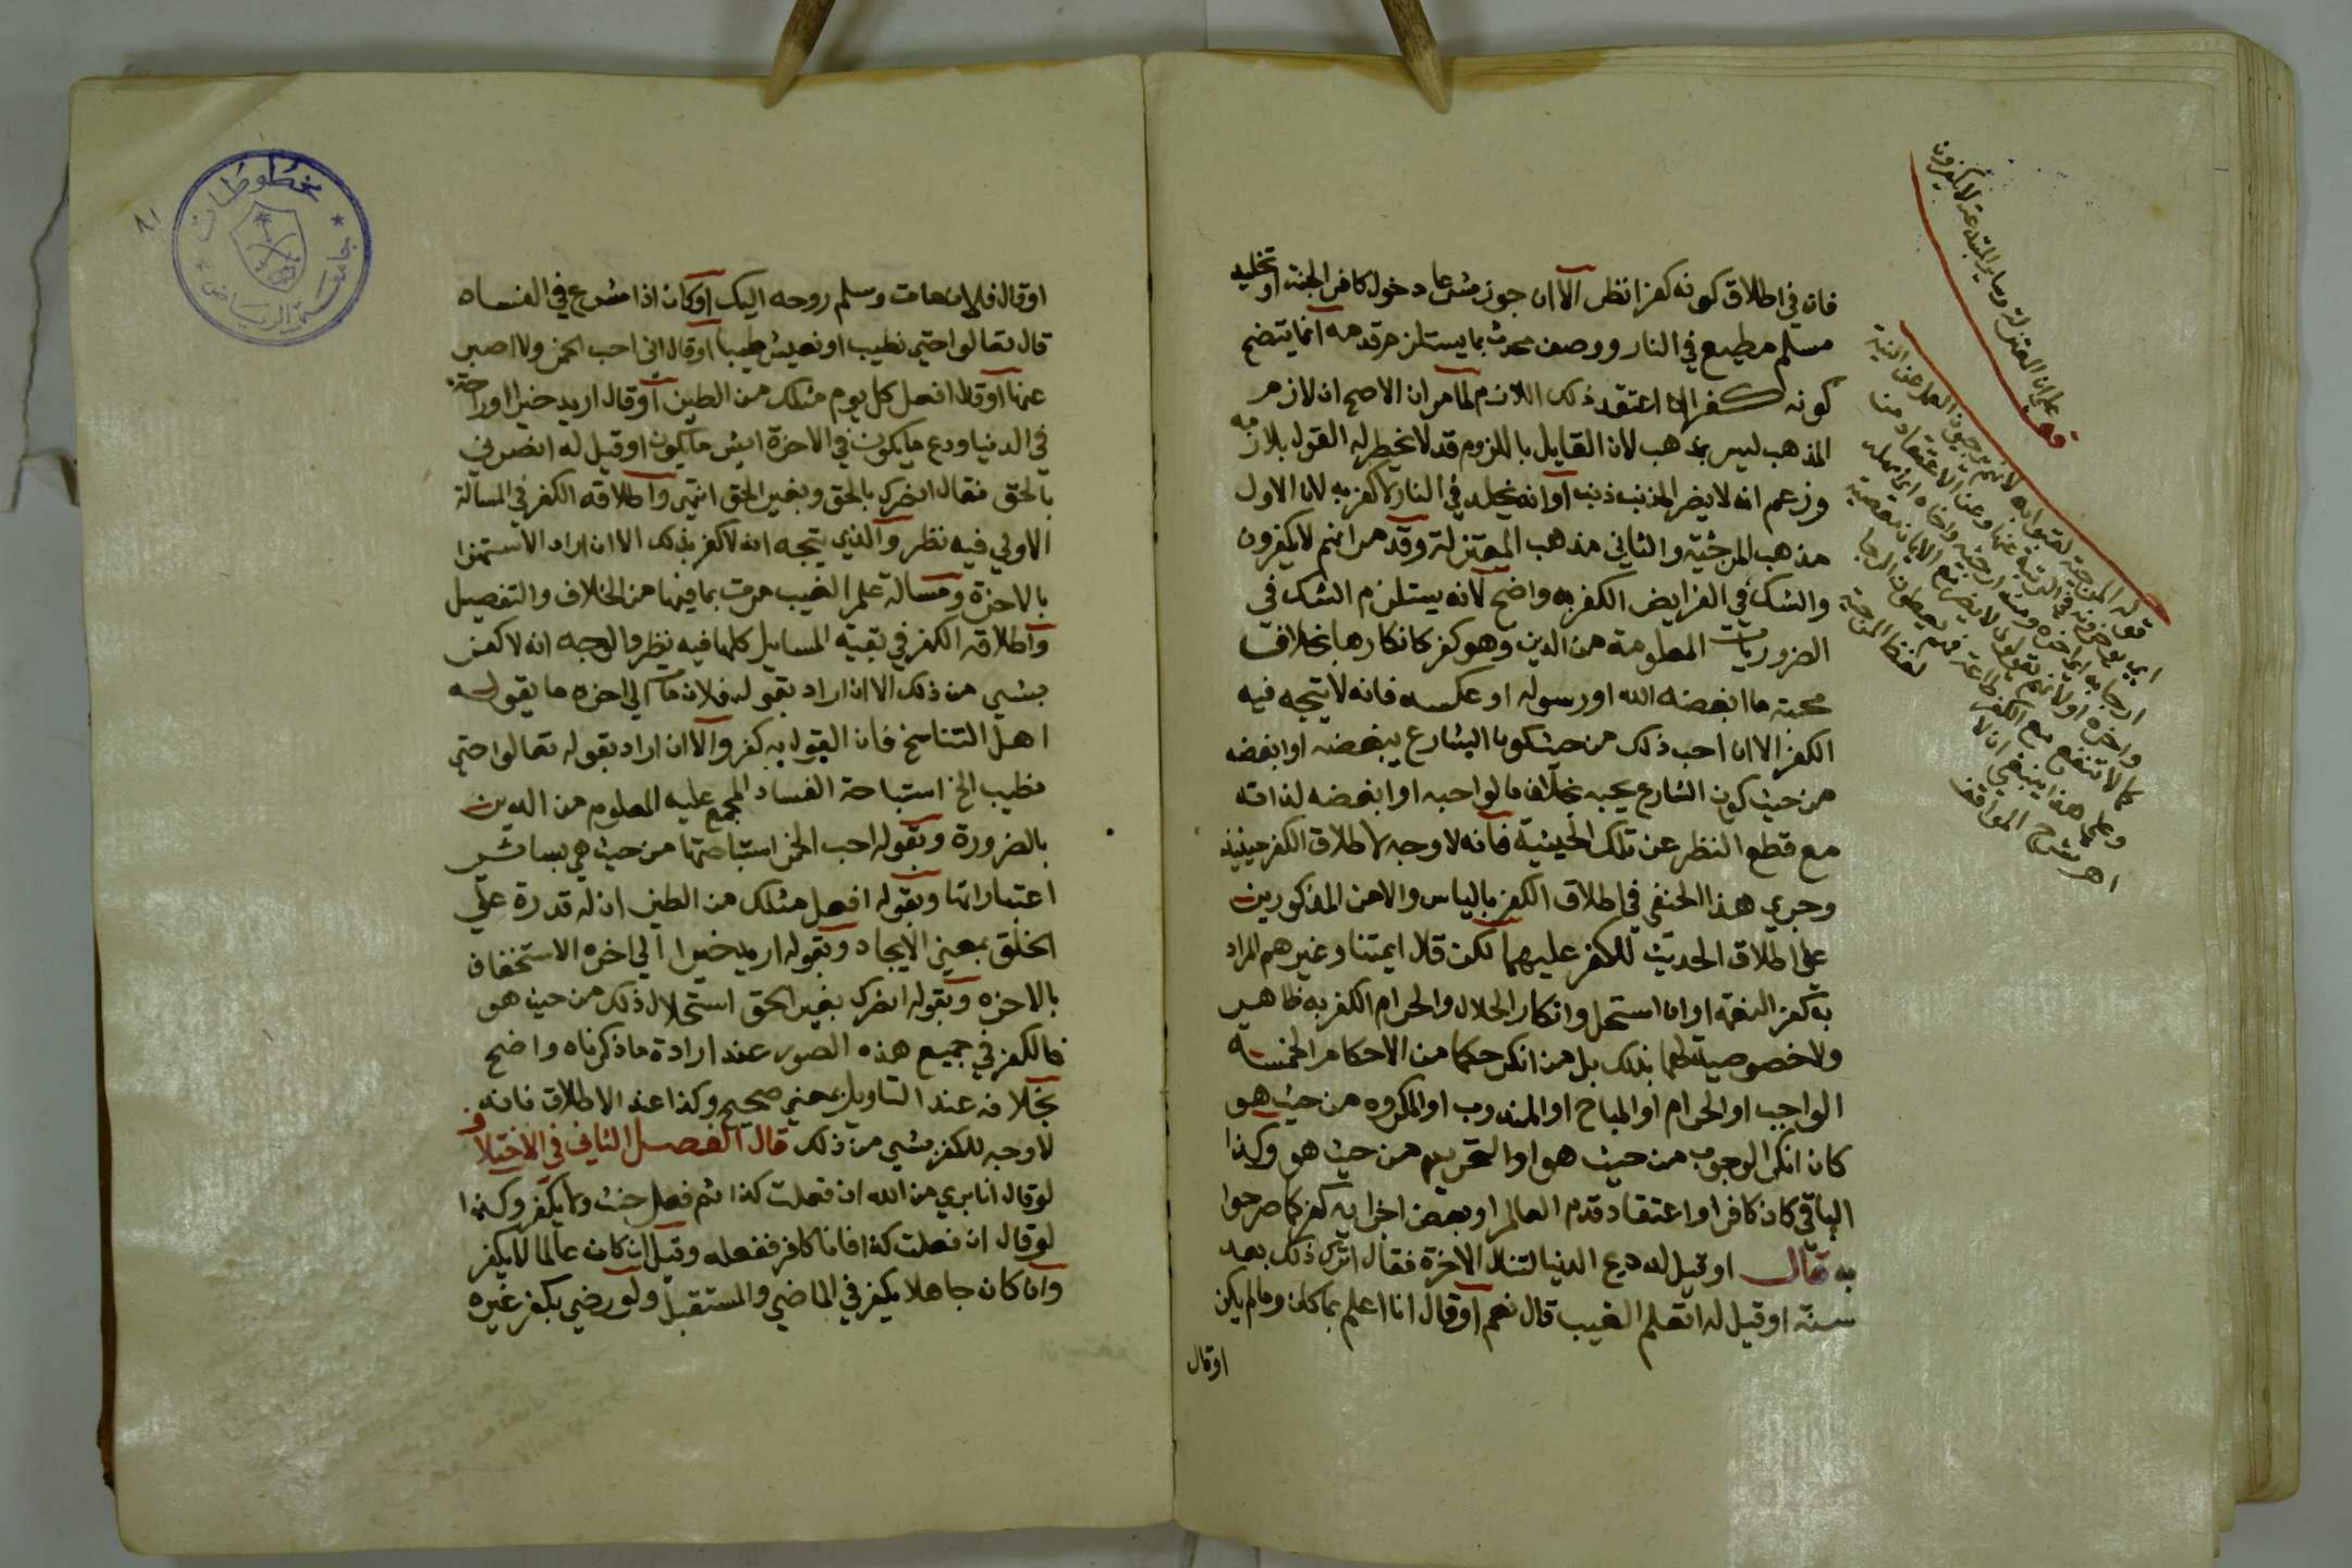 فانه في اطلاق كونه كفرا نظر الا ان جوز شرعا دخول كافر الجنة او تخليد
مسلم مطيع في النار ووصف محدث بما يستلزم قدمه انما يتضح
كونه كفرا ان اعتقد ذلك اللازم لما مر ان الاصح ان لازم
المذهب ليس بمذهب لان القايل بالملزوم قد لا يخطر له القول بلازمه
وزعم انه لا يضر المذنب ذنب او انه يخلد في النار لا كفر به لان الاول
مذهب المرجئية والثاني مذهب المعتزلة وقد مر انهم لا يكفرون
والشك في الفرايض الكفر به واضح لانه يستلزم الشك في
الضروريات المعلومة من الدين وهو كفر كانكارها بخلاف
محبة ما ابغضه الله او رسوله او عكسه فانه لا يتجه فيه
الكفر الا ان احب ذلك من حيث كون الشارع يبغضه او ابغضه
من حيث كون الشارع يحبه بخلاف ما لو احبه او ابغضه لذاته
مع قطع النظر عن تلك الحيثية فانه لا وجه لاطلاق الكفر حينيذ
وجري هذا الحنفي في اطلاق الكفر بالياس والامن المذكورين
علي اطلاق الحديث للكفر عليهما لكن قال ايمتنا وغيرهم المراد
به كفر النعمة او ان استحل وانكار الحلال والحرام الكفر به ظاهر
ولا خصوصية لهما بذلك بل من انكر حكما من الاحكام الخمسة
الواجب او الحرام او المباح او المندوب او المكروه من حيث هو
كان انكر الوجوب من حيث هو او التحريم من حيث هو وكذا
الباقي كان كافرا او اعتقاد قدم العالم او بعض اجزايه كفر كما صرحوا
به قال او قيل له دع الدنيا لتنال الاخرة فقال اترك ذلك بعد
سنة او قيل له اتعلم الغيب قال نعم او قال انا اعلم بما كان وما لم يكن
او قال
قوله المرجئية لقبوا به لانهم يرجون العمل عن النية
اي يؤخرونه في الرتبة عنها وعن الاعتقاد من
ارجاه اي اخره ومنه ارجئه واخاه اي امهله
واخره او لانهم يقولون لا يضر مع الايمان معصية
كما لا تنفع مع الكفر طاعة فهم يعطون الرجا
وعلي هذا ينبغي ان لا
لفظ المرجئية
اهـ شرح المواقف
المعتزلة وساير المبتدعة لا يكفرون
مخطوطات
جامعة الرياض
٨١
او قال فلان مات وسلم روحه اليك او كان اذا شرع في الفساد
قال تعالوا حتي نطيب او نعيش طيبا او قال اني احب الخمر ولا اصبر
عنها او قال افعل كل يوم مثلك من الطين او قال اريد خيرا او راحة
في الدنيا ودع ما يكون في الاخرة ايش ما يكون او قيل له انصرني
بالحق فقال انصرك بالحق وبغير الحق انتهي واطلاقه الكفر في المسالة
الاولي فيه نظر والذي يتجه انه لا كفر بذلك الا ان اراد الاستهزا
بالاخرة ومسالة علم الغيب مرت بما فيها من الخلاف والتفصيل
واطلاقه الكفر في بقية المسايل كلها فيه نظر والوجه انه لا كفر
بشي من ذلك الا ان اراد بقوله فلان مات الي اخره ما يقوله
اهل التناسخ فان القول به كفر والا ان اراد بقوله تعالوا حتي
نطيب الخ استباحة الفساد المجمع عليه المعلوم من الدين
بالضرورة وبقوله احب الخمر استباحتها من حيث هي بساير
اعتباراتها وبقوله افعل مثلك من الطين ان له قدرة علي
الخلق بمعني الايجاد وبقوله اريد خيرا الي اخره الاستخفاف
بالاخرة وبقوله انصرك بغير الحق استحلال ذلك من حيث هو
فالكفر في جميع هذه الصور عند ارادة ما ذكرناه واضح
بخلافه عند التاويل بمعني صحيح وكذا عند الاطلاق فانه
لا وجه للكفر بشي من ذلك قال الفصل الثاني في الاختلاف
لو قال انا بري من الله ان فعلت كذا ثم فعل حنث ولا يكفر وكذا
لو قال ان فعلت كذا فانا كافر ففعله وقيل ان كان عالما لا يكفر
وان كان جاهلا يكفر في الماضي والمستقبل ولو رضي بكفر غيره